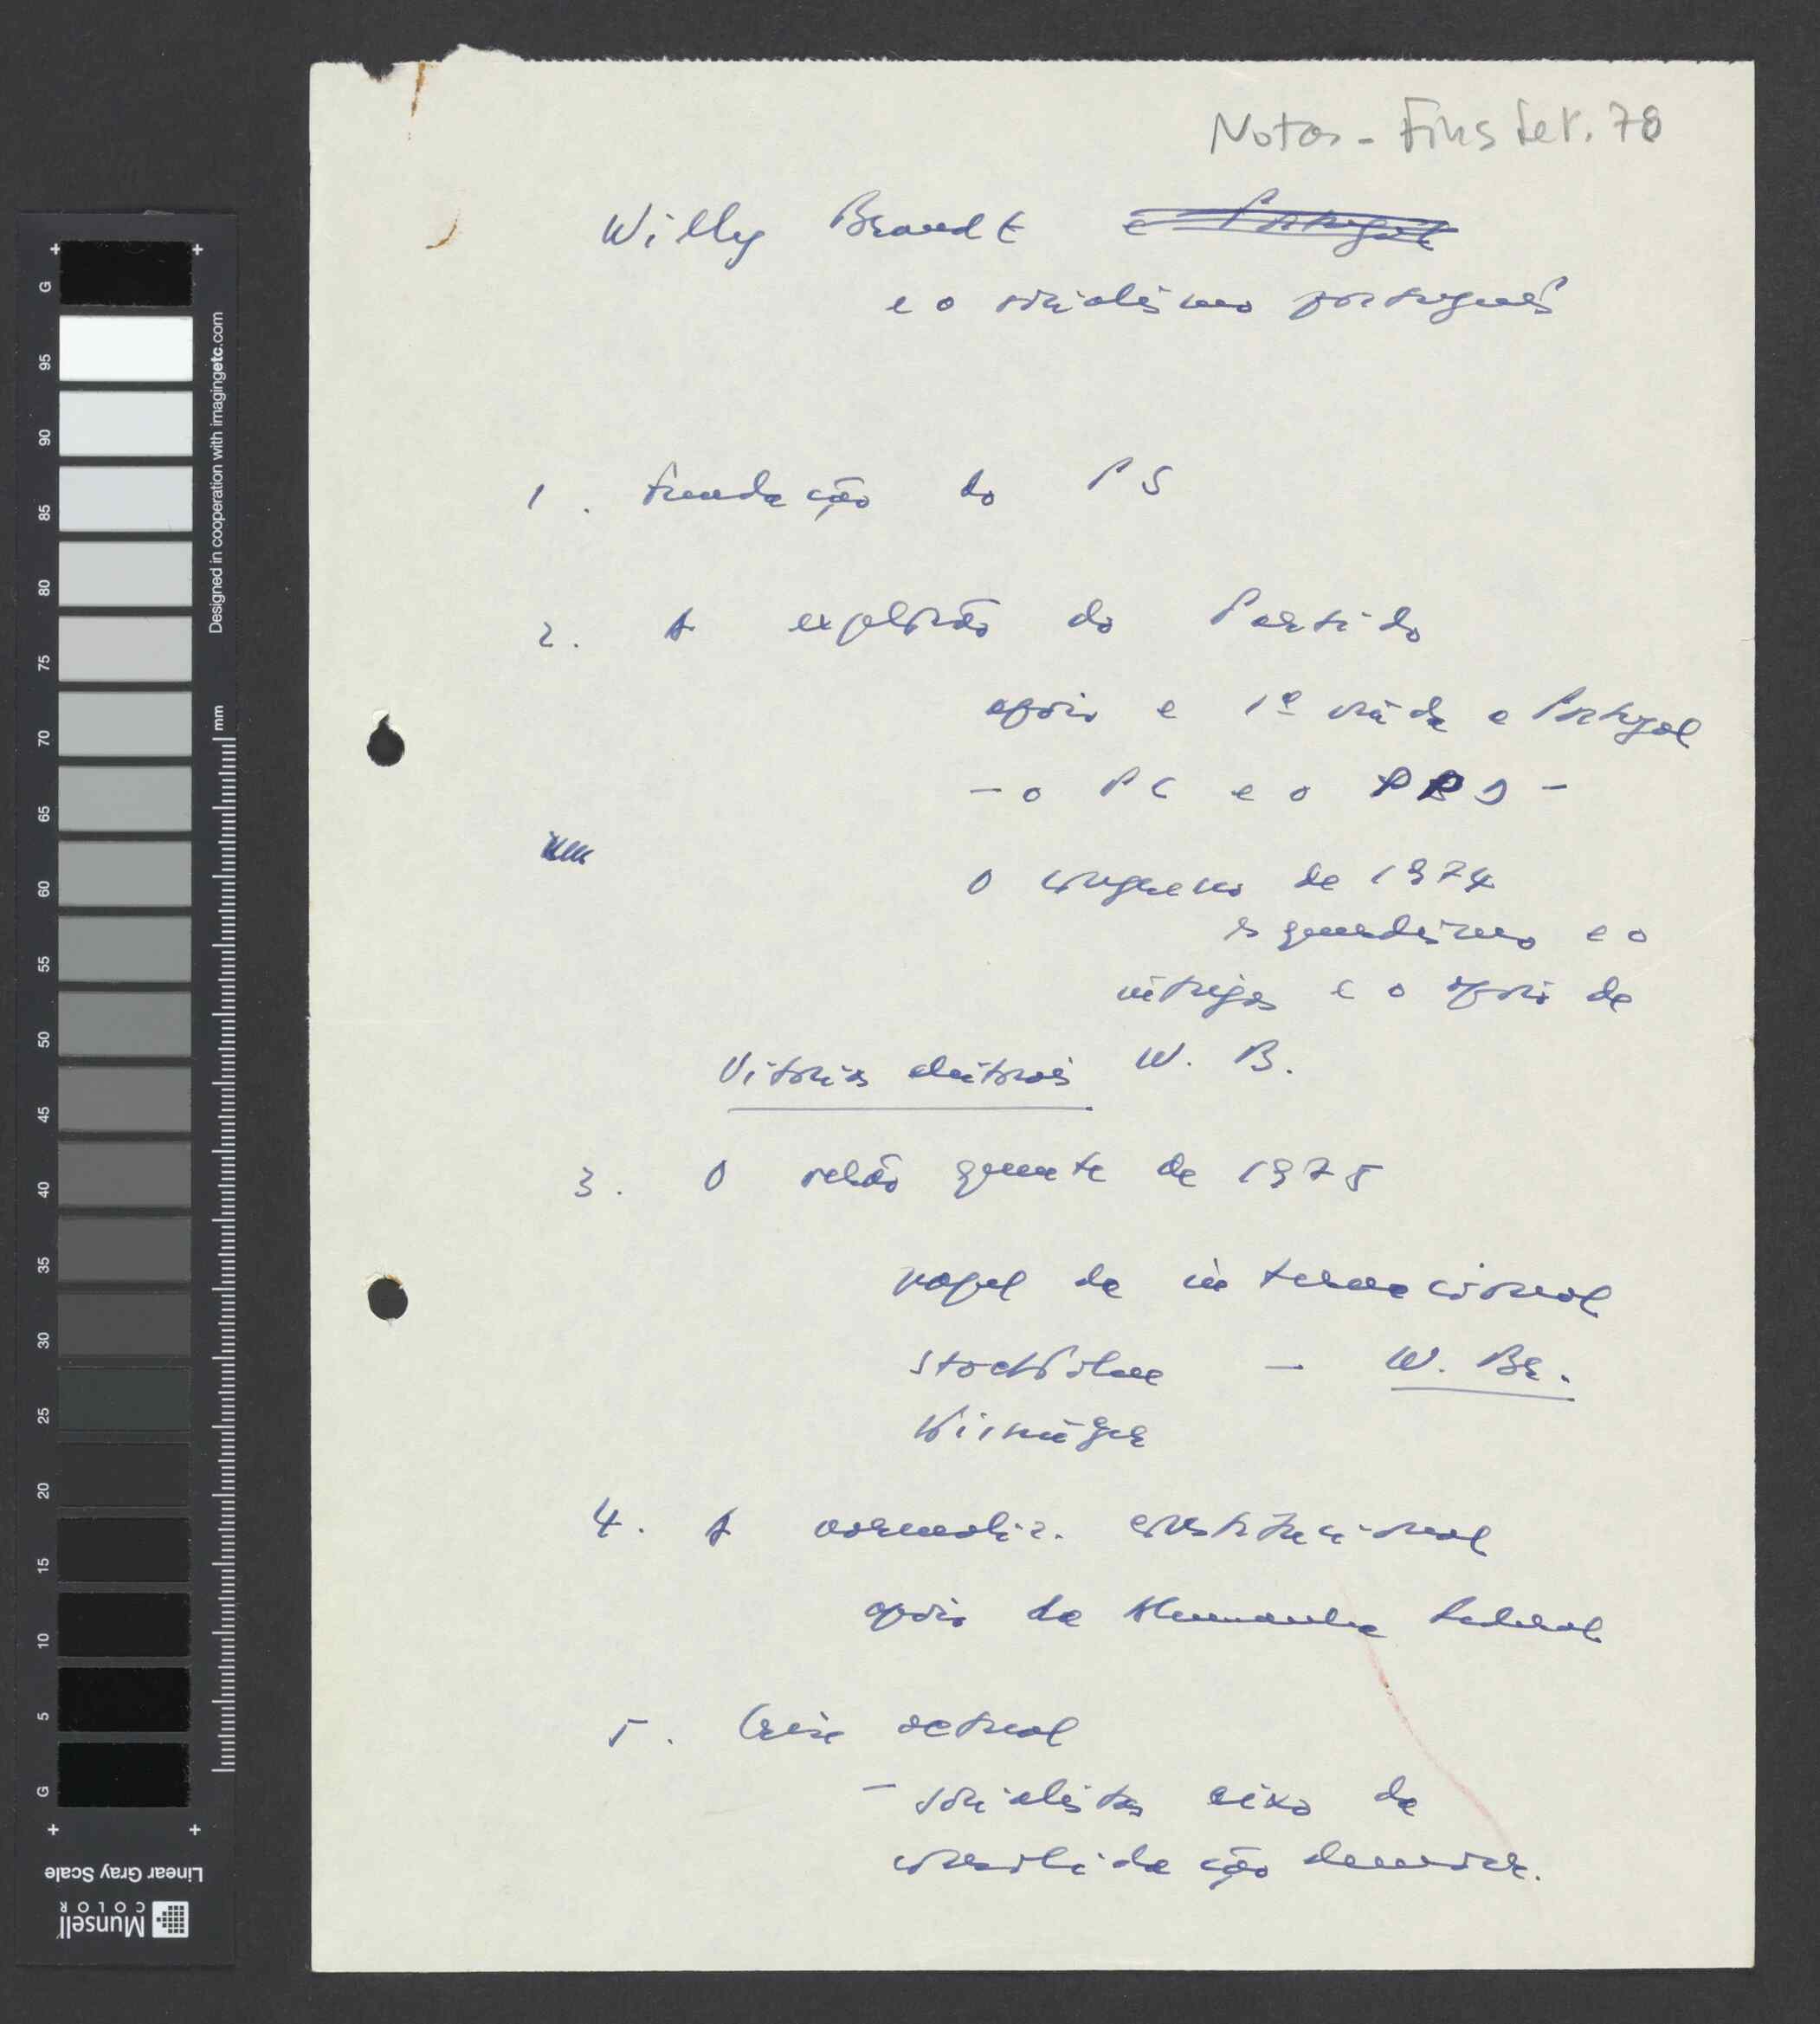 Notas - Fins Set. 78
Willy Brandt e Portugal
e o socialismo português
1. Fundação do PS
2. A explosão do Partido
apoio e 1ª vinda a Portugal
- o PC e o PPD -
O congresso de 1974
esquerdismo e o
intrigas e o apoio de
Vitórias eleitorais W. B.
3. O verão quente de 1975
papel da internacional
Stockholm - W. Br.
4. A normaliz. constitucional
apoio da Alemanha Federal
5. Crise actual
- socialistas eixo da
consolidação democr.
G
95
90
85
80
75
70
65
60
55
50
45
40
35
30
25
20
15
10
5
G
Designed in cooperation with imagingetc.com
mm
Linear Gray Scale
Munsell
COLOR